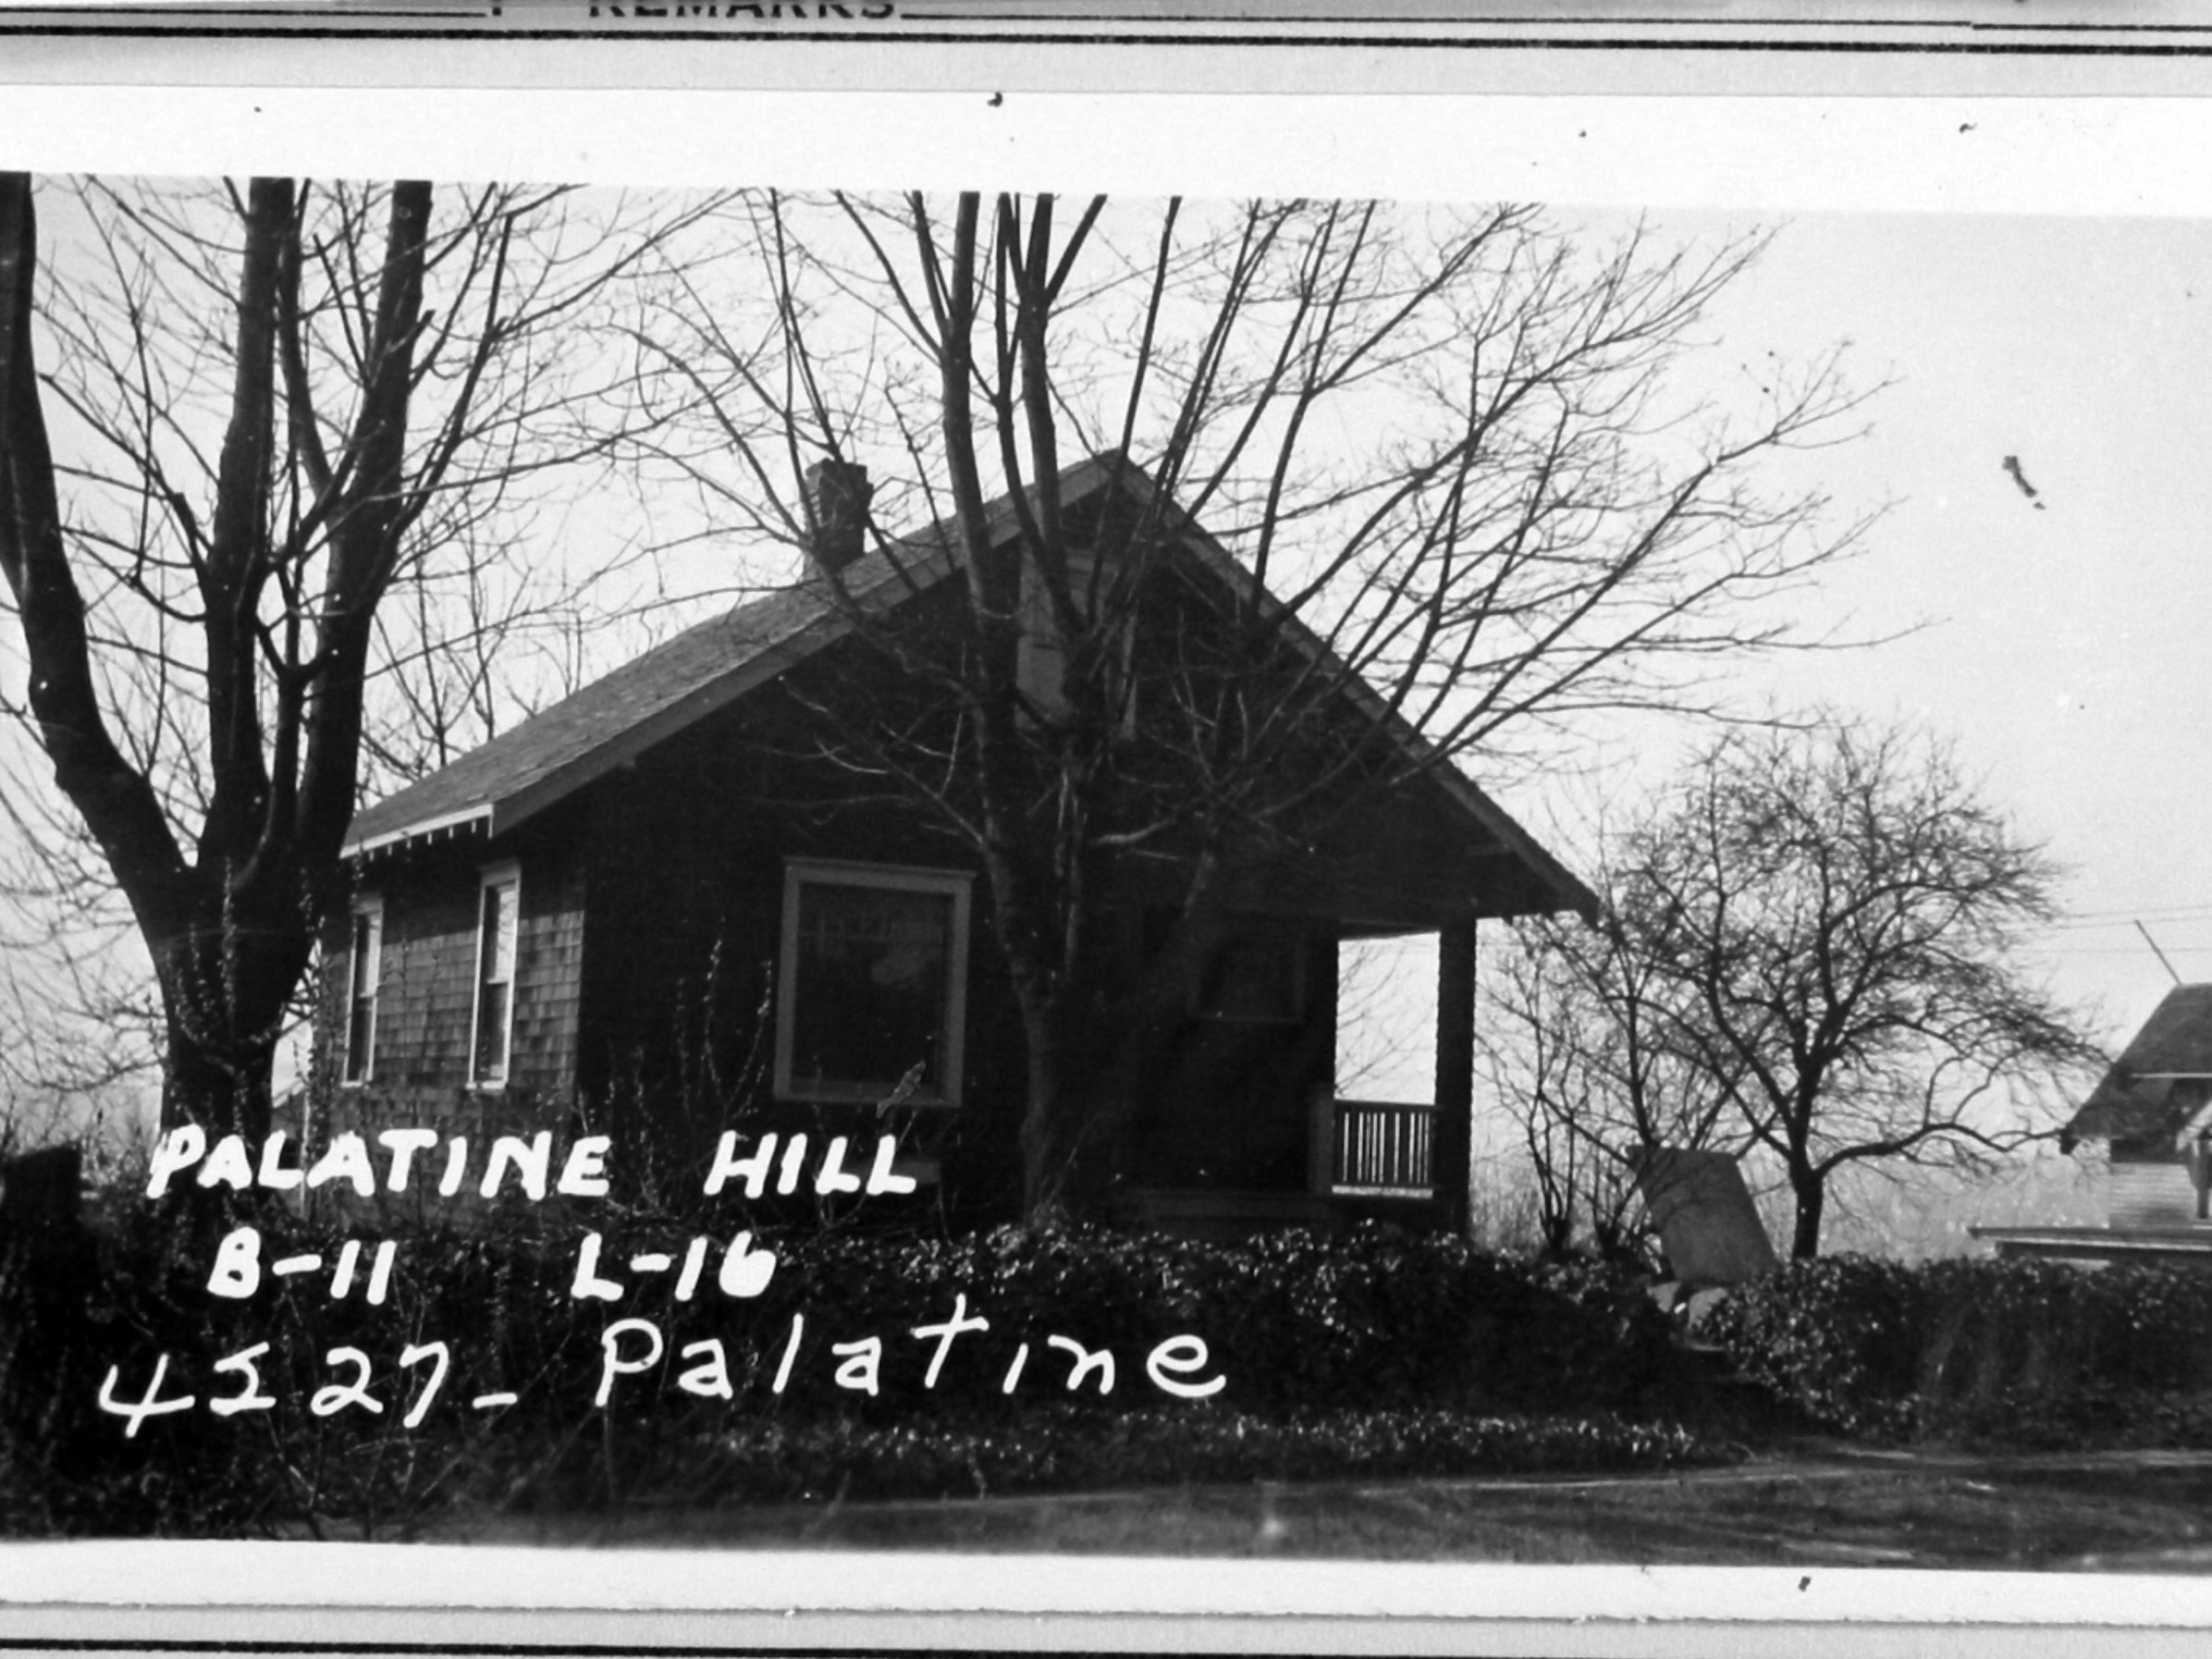 REMARKS
PALATINE HILL
B-11 L-16
4527- Palatine